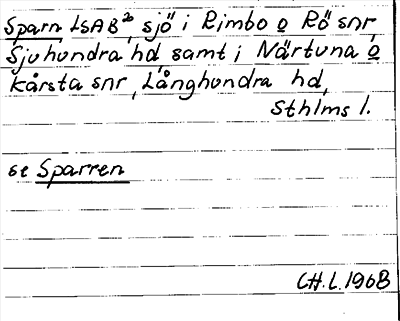 Sparn LSAB²⁰, sjö i Rimbo o Rö snr,
Sjuhundra hd samt i Närtuna o
Kårsta snr, Långhundra hd,
Sthlms l.
se Sparren
CH.L. 1968